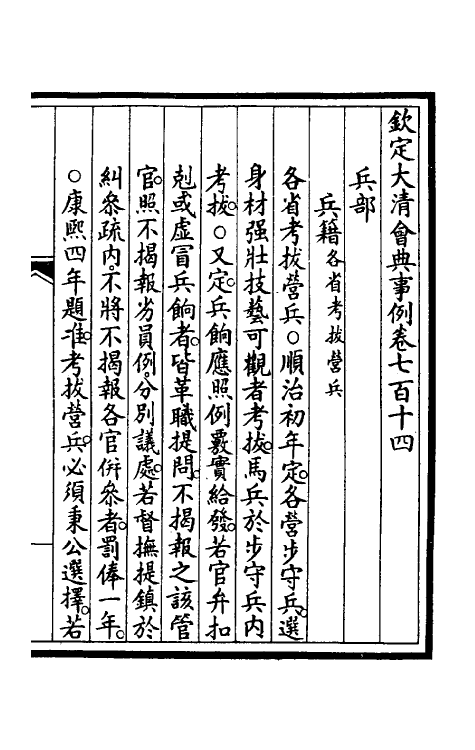 欽定大清會典事例卷七百十四
兵部
兵籍各省考拔營兵
各省考拔營兵○順治初年定。各營步守兵。選
身材强壯技藝可觀者考拔。馬兵於步守兵內
考拔。○又定。兵餉應照例覈實給發。若官弁扣
剋或虛冒兵餉者。皆革職提問。不揭報之該管
官。照不揭報劣員例。分別議處。若督撫提鎮於
糾叅疏內。不將不揭報各官倂叅者。罰俸一年。
○康熙四年題准。考拔營兵。必須秉公選擇。若